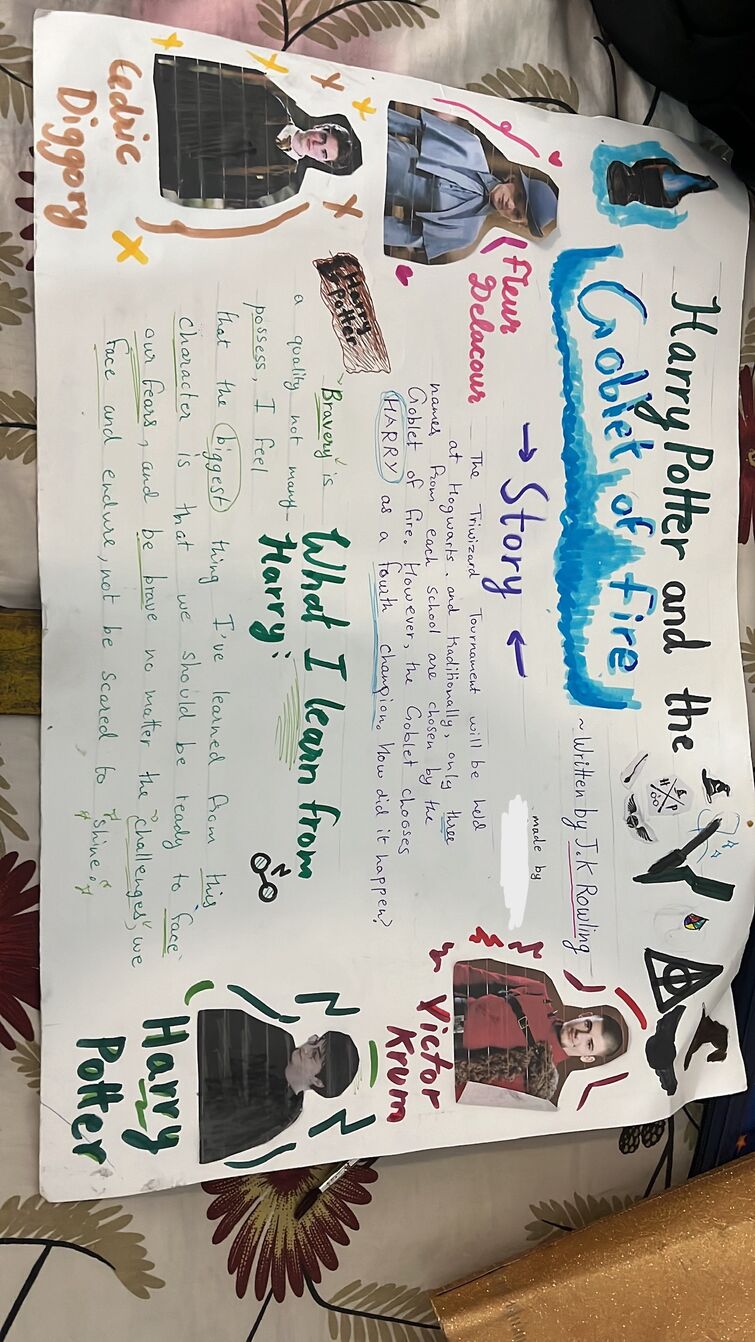 Harry Potter and the
Goblet of fire
~Written by J.K Rowling
made by
→ Story ←
The Triwizard Tournament will be held
at Hogwarts. and traditionally, only three
names from each school are chosen by the
Goblet of fire. However, the Goblet chooses
HARRY as a fourth champion. How did it happen?
Fleur
Delacour
Victor
Krum
Cedric
Diggory
Harry
Potter
Harry
Potter
What I learn from
Harry:
Bravery is
a quality not many
possess, I feel
that the biggest thing I've learned from this
character is that we should be ready to face
our fears, and be brave no matter the challenges, we
face and endure, not be scared to 'shine.'
H P